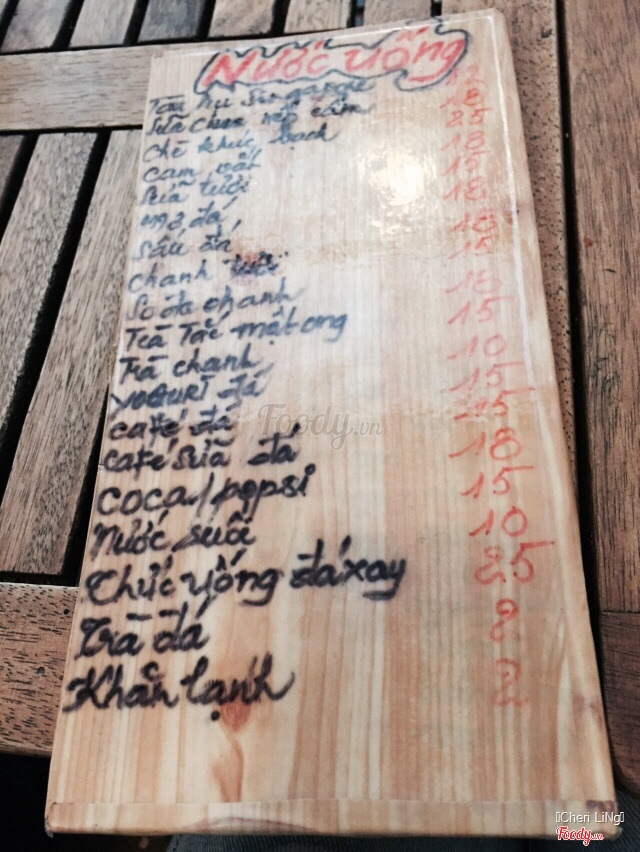 Nước uống
Tàu hu Singapore 12
Sữa chua nếp cẩm 18
Chè khúc bạch 25
Cam vắt 18
Sữa tươi 15
Mơ đá 18
Sấu đá
Chanh tươi 15
Soda chanh 18
Trà Tắc mật ong 15
Trà chanh 10
YOGURT đá 15
Café đá 15
Café sữa đá 18
COCA/pepsi 15
Nước suối 10
Thức uống đá xay 25
Trà đá 2
Khăn lạnh 2
Foody.vn
[Cheri LiNg]
Foody.vn